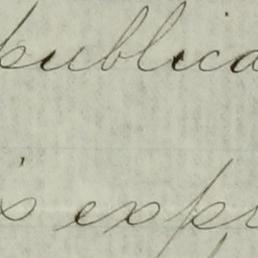 publica
s exp